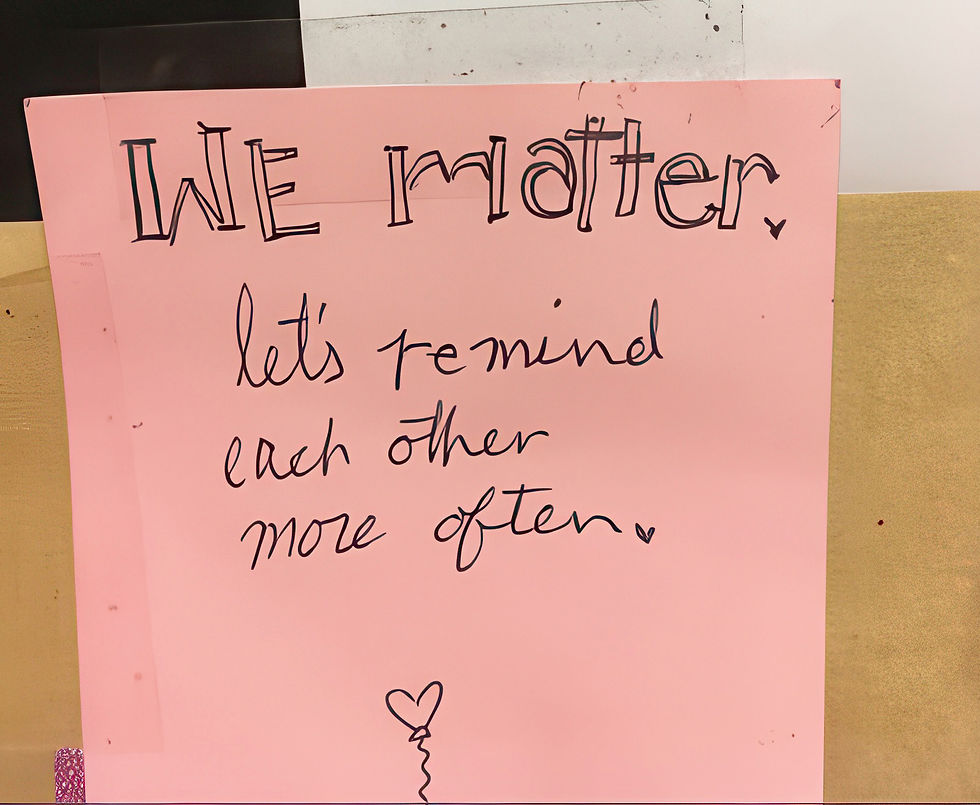 WE matter.
let's remind
each other
more often.